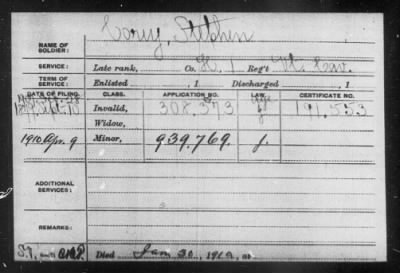 Corey, Stephen
NAME OF SOLDIER:
SERVICE: Late rank, Co. K, 1 Reg't Vt. Cav.
TERM OF SERVICE: Enlisted , 1 Discharged , 1
DATE OF FILING. CLASS. APPLICATION NO. LAW. CERTIFICATE NO.
Invalid, 308.373 191.553
Widow,
1910 Apr. 9 Minor, 939.769. J.
ADDITIONAL SERVICES:
REMARKS:
Died Jan 30, 1910, at